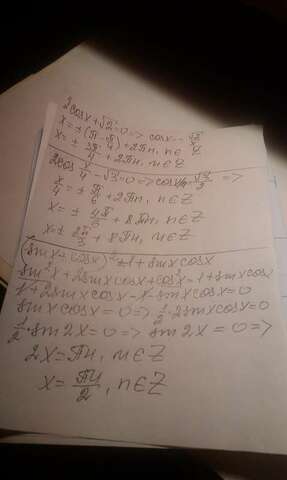 2cosx+√2=0 => cosx=-√2/2
x=±(π-π/4)+2πn, n∈Z
x=±3π/4+2πn, n∈Z
2cos x/4-√3=0 => cos x/4=√3/2 =>
x/4=±π/6+2πn, n∈Z
x=±4π/6+8πn, n∈Z
x=±2π/3+8πn, n∈Z
(sinx+cosx)²=1+sinxcosx
sin²x+2sinxcosx+cos²x=1+sinxcosx
1+2sinxcosx-1-sinxcosx=0
sinxcosx=0 => 1/2·2sinxcosx=0
1/2·sin2x=0 => sin2x=0 =>
2x=πn, n∈Z
x=πn/2, n∈Z